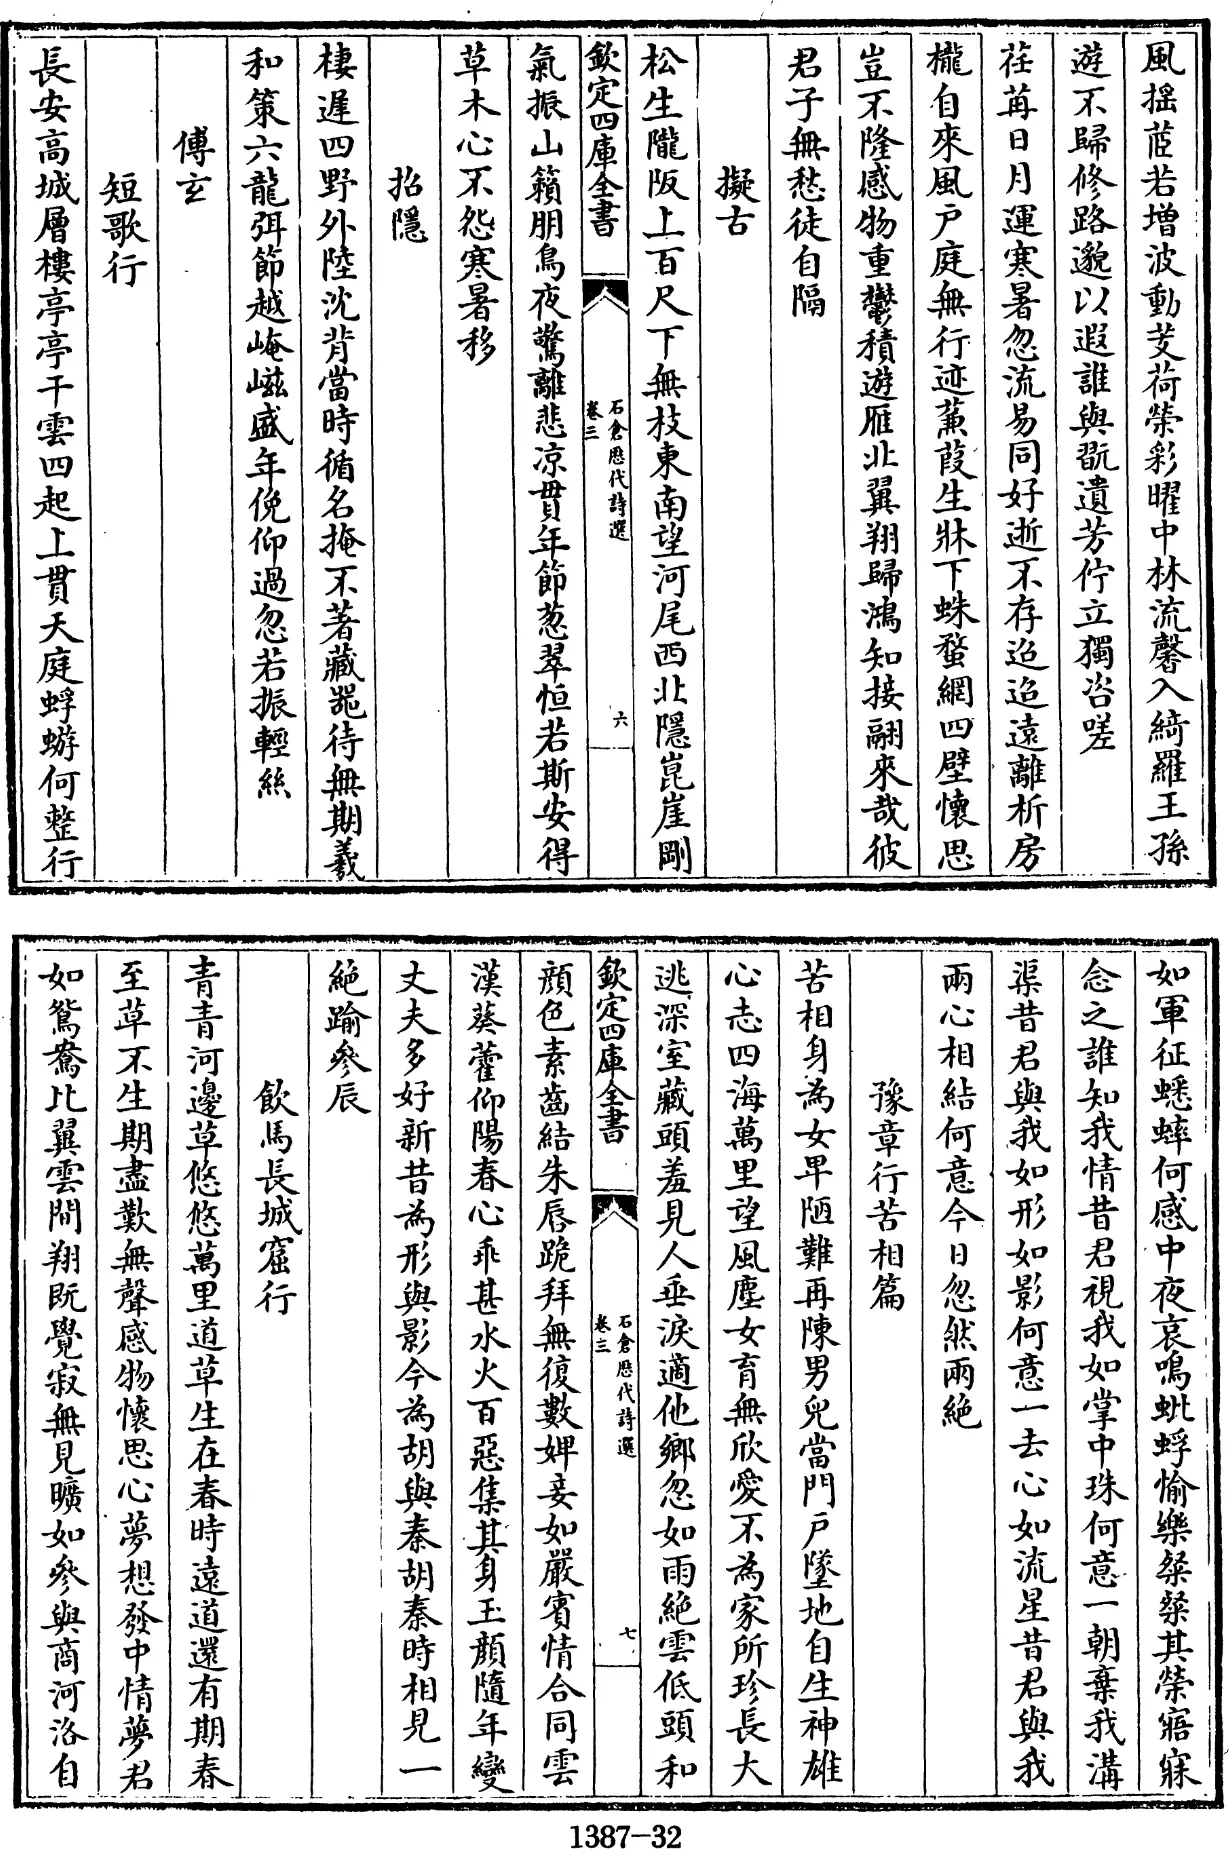 風揺茝若增波動芰荷榮彩曜中林流馨入綺羅王孫
遊不歸修路邈以遐誰與翫遺芳佇立獨咨嗟
荏苒日月運寒暑忽流易同好逝不存迢迢遠離析房
櫳自來風户庭無行迹蒹葭生牀下蛛蝥網四壁懷思
豈不隆感物重鬱積遊雁比翼翔歸鴻知接翮來哉彼
君子無愁徒自隔
擬古
松生隴阪上百尺下無枝東南望河尾西北隱崑崖剛
欽定四庫全書
石倉歷代詩選
卷三
六
氣振山籟朋鳥夜驚離悲凉貫年節葱翠恒若斯安得
草木心不怨寒暑移
招隱
棲遲四野外陸沈背當時循名掩不著藏噐待無期羲
和策六龍弭節越崦嵫盛年俛仰過忽若振輕絲
傅玄
短歌行
長安高城層樓亭亭干雲四起上貫天庭蜉蝣何整行
如軍征蟋蟀何感中夜哀鳴蚍蜉愉樂粲粲其榮寤寐
念之誰知我情昔君視我如掌中珠何意一朝棄我溝
渠昔君與我如形如影何意一去心如流星昔君與我
兩心相結何意今日忽然兩絶
豫章行苦相篇
苦相身為女卑陋難再陳男兒當門户墜地自生神雄
心志四海萬里望風塵女育無欣愛不為家所珍長大
逃深室藏頭羞見人垂淚適他鄉忽如雨絶雲低頭和
欽定四庫全書
石倉歷代詩選
卷三
七
顔色素齒結朱唇跪拜無復數婢妾如嚴賓情合同雲
漢葵藿仰陽春心乖甚水火百惡集其身玉顔隨年變
丈夫多好新昔為形與影今為胡與秦胡秦時相見一
絶踰參辰
飲馬長城窟行
青青河邊草悠悠萬里道草生在春時遠道還有期春
至草不生期盡歎無聲感物懷思心夢想發中情夢君
如鴛鴦比翼雲間翔既覺寂無見曠如參與商河洛自
1387-32